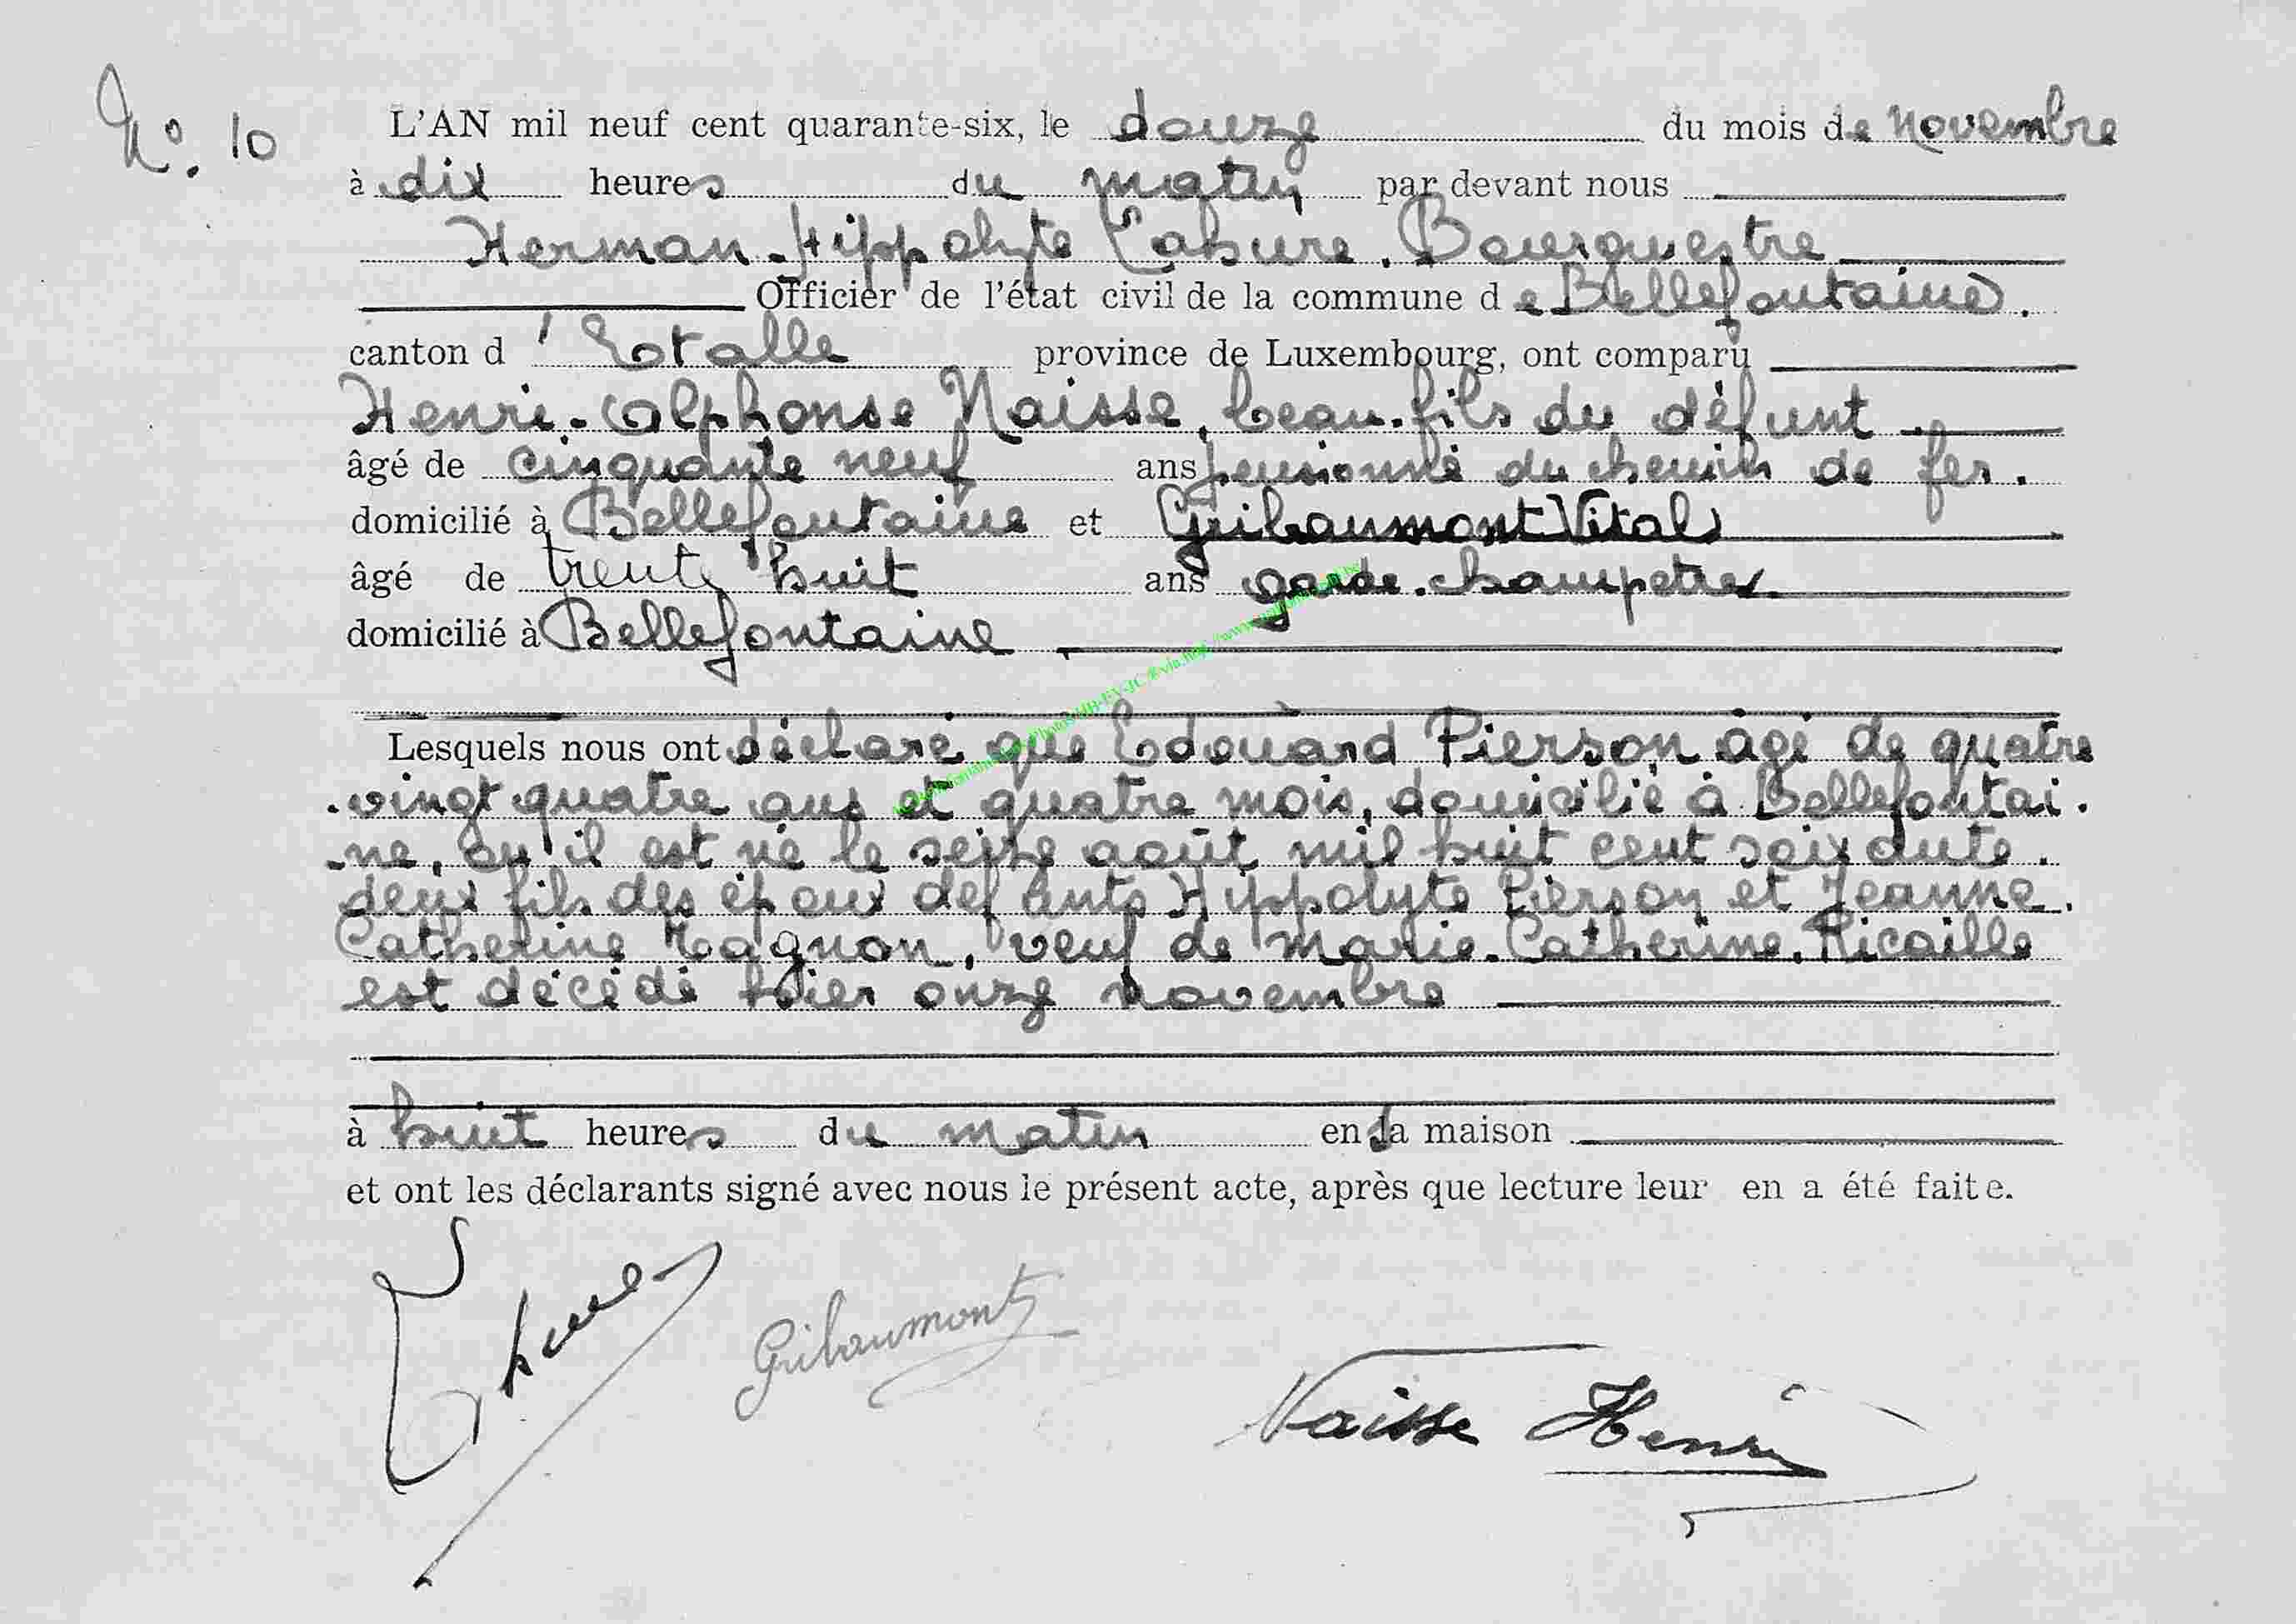 No. 10
L'AN mil neuf cent quarante-six, le douze du mois de novembre
à dix heures du matin par devant nous
Herman-Hippolyte Labure. Bourgmestre
Officier de l'état civil de la commune de Bellefontaine.
canton d'Etalle province de Luxembourg, ont comparu
Henri-Alphonse Naisse, beau-fils du défunt.
âgé de cinquante neuf ans pensionné du chemin de fer.
domicilié à Bellefontaine et Gribaumont Vital
âgé de trente huit ans garde-champetre
domicilié à Bellefontaine.
Lesquels nous ont déclaré que Edouard Pierson âgé de quatre
-vingt quatre ans et quatre mois, domicilié à Bellefontai-
-ne, ou il est né le seize août mil huit cent soixante-
deux fils des époux defunts Hippolyte Pierson et Jeanne-
Catherine Tagnon, veuf de Marie-Catherine Ricaille
est décédé hier onze novembre
à huit heures du matin en sa maison
et ont les déclarants signé avec nous le présent acte, après que lecture leur en a été faite.
Gribaumont
Naisse Henri